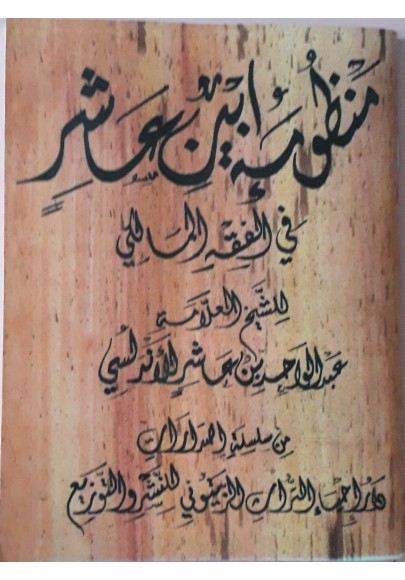 منظومة ابن عاشر
في الفقه المالكي
للشيخ العلامة
عبد الواحد بن عاشر الأندلسي
من سلسلة اصدارات
دار احياء التراث الزيتوني للنشر والتوزيع